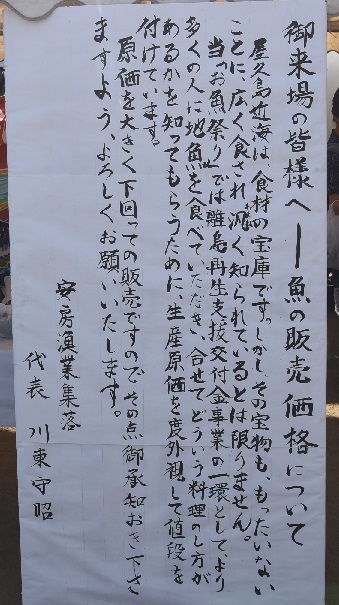 御来場の皆様へ――魚の販売価格について
屋久島近海は、食材の宝庫です。しかし、その宝物も、もったいない
ことに、広く食され汎く知られているとは限りません。
当「お魚祭り」では離島再生支援交付金事業の一環として、より
多くの人に地魚を食べていただき、合せてどういう料理のし方が
あるかを知ってもらうために、生産原価を度外視して値段を
付けています。
原価を大きく下回っての販売ですので、その点御承知おき下さ
ますよう、よろしくお願いいたします。
安房漁業集落
代表 川東守昭